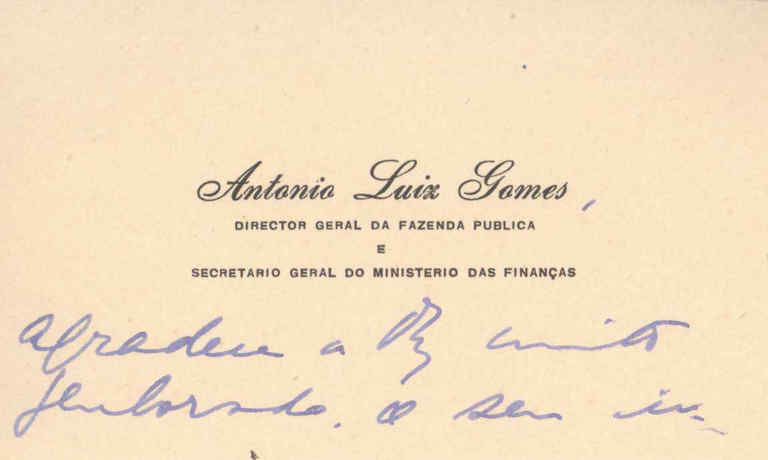 Antonio Luiz Gomes,
DIRECTOR GERAL DA FAZENDA PUBLICA
E
SECRETARIO GERAL DO MINISTERIO DAS FINANÇAS
agradece a muito
penhorado, o seu in-